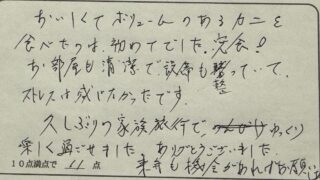 おいしくてボリュームのあるカニを
食べたのは、初めてでした。完食!
お部屋も清潔で設備も整っていて、
整
ストレスは感じなかったです。
久しぶりの家族旅行で、ゆっくり
楽しく過ごせました。ありがとうございました。
10点満点で 11 点 来年も機会があればお願い